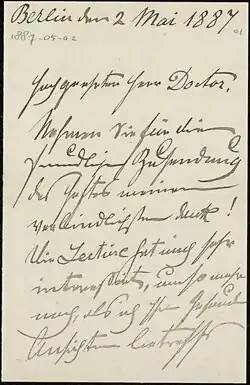 Berlin den 2 Mai 1887
1887-05-02
Hochgeehrter Herr Doctor.
Nehmen Sie für die
freundliche Zusendung
des Heftes meinen
verbindlichsten Dank!
Die Lectüre hat mich sehr
interessirt, um so mehr
noch, als ich Ihre
Ansichten